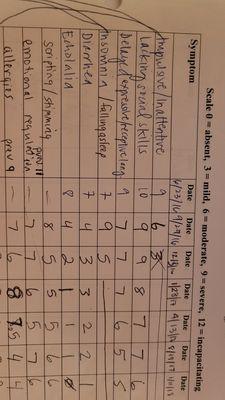 Scale 0 = absent, 3 = mild, 6 = moderate, 9 = severe, 12 = incapacitating
Symptom Date Date Date Date Date Date Date
6/23/16 9/29/16 1/23/17 4/13/17
Impulsive/Inattentive 9 6 3
Lacking social skills 10 9 9 8 7 7 6
Delayed expressive/receptive lang. 9 7 7 7 6 5 5
Insomnia falling asleep 7 9 5
Diarrhea 7 4 3 3 2 2 1
Echolalia 8 4 2 1 1 1 0
scripting/stimming — 8 5 5 5 6 6
emotional regulation prev 11 — 7 7 6 5 7 6
allergies prev 9 — 7 6 8 4 4